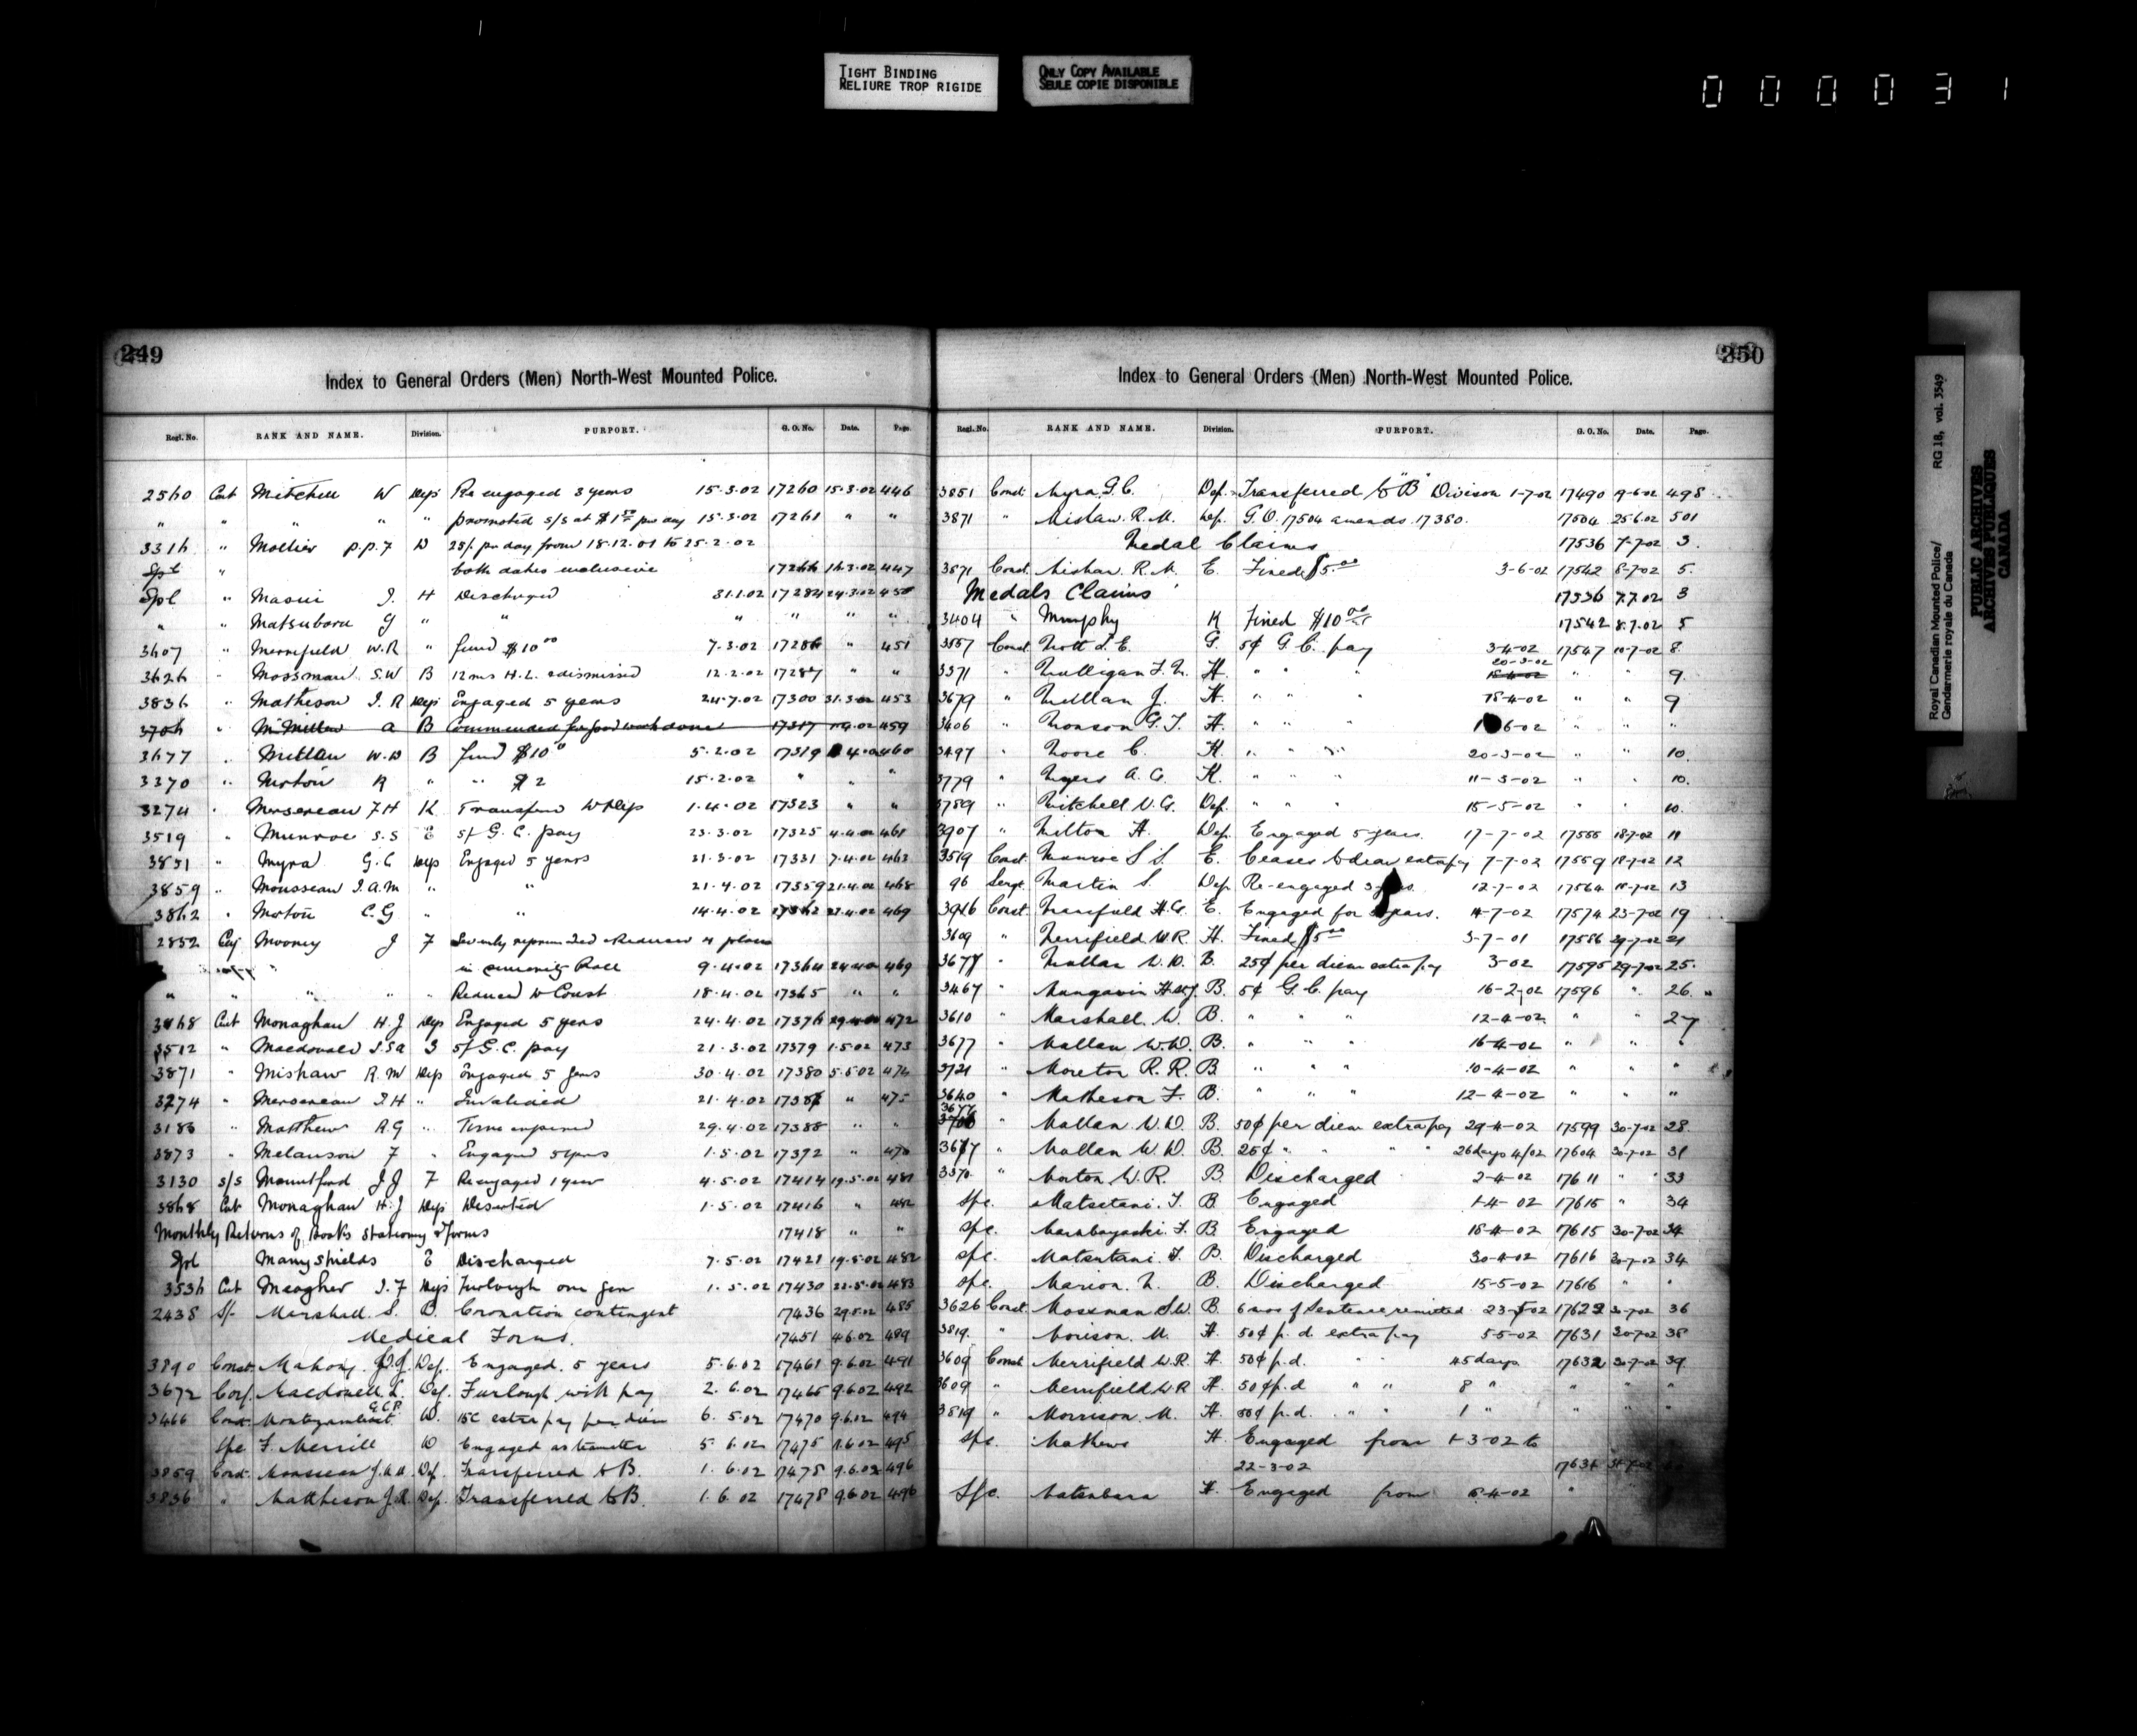 TIGHT BINDING
RELIURE TROP RIGIDE
ONLY COPY AVAILABLE
SEULE COPIE DISPONIBLE
000031
249
Index to General Orders (Men) North-West Mounted Police.
Regl. No. RANK AND NAME. Division. PURPORT. G. O. No. Date. Page
2560 Cnt Mitchell W Dep Re engaged 3 years 15.3.02 17260 15.3.02 446
" " " " " promoted S/S at $1.50 per day 15.3.02 17261 " "
3316 " P.P.F D 25/ per day from 18.12.01 to 25.2.02
Spl " both dates inclusive 17266 447
Spl " Masui J. H Discharged 31.1.02 17284 24.3.02 450
" " Matsubara G " " " " " "
3607 " Merrifield W.R " fined $10.00 7.3.02 17286 " 451
3626 " Mossman S.W B 12 ms H.L. & dismissed 12.2.02 17287
3836 " Matheson J.R Dep Engaged 5 years 24.7.02 17300 31.3.02 453
3706 " McMillan A B Commended for good work done 17317 459
3677 " W.D B fined $10.00 5.2.02 17319 460
3270 " Moton R " " $2 15.2.02 " " "
3274 " Mersereau F H K Transferred to Dep 1.4.02 17323 " "
3519 " Munroe S.S E 5/ G.C. pay 23.3.02 17325 4.4.02 461
3851 " Myra G.C Dep Engaged 5 years 31.3.02 17331 7.4.02 462
3859 " Mousseau J.A.M " " 21.4.02 17359 21.4.02 468
3862 " Moton C.G " " 14.4.02 17362 469
2852 Cpl Mooney J F Severely reprimanded & Reduced 4 places
in seniority Roll 9.4.02 17364 469
" " " " " Reduced to Const 18.4.02 17365 " "
3868 Cnt Monaghan H.J Dep Engaged 5 years 24.4.02 17376 29.4.02 472
3512 " Macdonald J.S.A G 5/ G.C. pay 21.3.02 17379 1.5.02 473
3871 " Mishaw R.M Dep Engaged 5 years 30.4.02 17380 5.5.02 474
3274 " Mersereau F.H " Invalided 21.4.02 17387 " 475
3186 " Matthew R.G " Time expired 29.4.02 17388 " "
3873 " Melanson F " Engaged 5 years 1.5.02 17392 " 476
3130 S/S Mountford J J F Reengaged 1 year 4.5.02 17414 19.5.02 481
3868 Cnt Monaghan H.J Dep Deserted 1.5.02 17416 " 482
Monthly Returns of Books Stationery & Forms 17418 " "
Spl Many shields E Discharged 7.5.02 17421 19.5.02 482
3536 Cnt Meagher J.F Dep Furlough one year 1.5.02 17430 22.5.02 483
2438 S/- Marshall S. D. Coronation contingent 17436 29.5.02 485
Medical Forms. 17451 4.6.02 489
3890 Const. Mahony D.J. Dep. Engaged 5 years 5.6.02 17461 9.6.02 491
3672 Corp. Macdonell L. Dep. Furlough with pay 2.6.02 17465 9.6.02 492
3466 Const. Montizambert G.C.P. D. 15c extra pay per diem 6.5.02 17470 9.6.02 494
Spc F. Merrill D Engaged as teamster 5.6.02 17475 9.6.02 495
3859 Const. Mousseau J.A.M. Dep. Transferred to B. 1.6.02 17478 9.6.02 496
3836 " Matheson J.R. Dep. Transferred to B. 1.6.02 17478 9.6.02 496
250
Index to General Orders (Men) North-West Mounted Police.
Regl. No. RANK AND NAME. Division. PURPORT. G. O. No. Date. Page.
3851 Const. Myra G.C. Dep. Transferred to "B" Division 1-7-02 17490 9-6-02 498
3871 " Mishaw R.M. Dep. G.O. 17504 amends 17380. 17504 25.6.02 501
Medal Claims 17536 7-7-02 3.
3871 Const. Mishaw R.M. E. Fined $5.00 3-6-02 17542 8-7-02 5.
Medals Claims 17536 7.7.02 3
3404 " Murphy K Fined $10.00 17542 8.7.02 5
3557 Const. Mott S.E. G. 5¢ G.C. pay 3-4-02 17547 10-7-02 8.
20-3-02
3371 " Mulligan F.M. H. " " " 18-4-02 " " 9.
3679 " Millan J. H. " " " 18-4-02 " " 9
3606 " Monson G.J. H. " " " 6-02 " " "
3497 " Moore C. K. " " " 20-3-02 " " 10.
3779 " Myers A.G. K. " " " 11-3-02 " " 10.
3789 " Mitchell N.G. Dep. " " " 15-5-02 " " 10.
3907 " Milton H. Dep. Engaged 5 years. 17-7-02 17555 18-7-02 11
3519 Const. Munroe S.S. E. Ceases to draw extra pay 7-7-02 17559 18-7-02 12
96 Sergt. Martin S. Dep. Re-engaged 3 years. 12-7-02 17564 18-7-02 13
3916 Const. Mansfield H.G. E. Engaged for years. 11-7-02 17574 23-7-02 19
3609 " Merrifield W.R. H. Fined $5.00 3-7-01 17586 29-7-02 21
3677 " Mallan W.D. B. 25¢ per diem extra pay 3-02 17595 29-7-02 25.
3467 " Mangavin B. 5¢ G.C. pay 16-2-02 17596 " 26.
3610 " Marshall W. B. " " " 12-4-02 " " 27
3677 " Mallan W.D. B. " " " 16-4-02 " " "
3721 " Moreton R.R. B " " " 10-4-02 " " "
3640 " Matheson F. B. " " " 12-4-02 " " "
3677
3706 " Mallan W.D. B. 50¢ per diem extra pay 29-4-02 17599 30-7-02 28
3677 " Mallan W.D. B. 25¢ " " " 26 days 4/02 17604 30-7-02 31
3370 " Morton W.R. B. Discharged 2-4-02 17611 " 33
Spc. Matsutani. T. B. Engaged 1-4-02 17615 " 34
Spc. B. Engaged 18-4-02 17615 30-7-02 34
Spc. Matsutani. T. B. Discharged 30-4-02 17616 30-7-02 34
Spc. Marion. M. B. Discharged 15-5-02 17616 " "
3626 Const. Mossman S.W. B. 6 mos of Sentence remitted 23-5-02 17622 30-7-02 36
3819 " Morison. M. H. 50¢ p.d. extra pay 5-5-02 17631 30-7-02 38
3609 Const. Merrifield W.R. H. 50¢ p.d. " " 45 days 17632 30-7-02 39.
3609 " Merrifield W.R H. 50¢ p.d " " 8 " " " "
3819 " Morrison. M. H. 50¢ p.d. " " 1 " " " "
Spc. Mathews H. Engaged from 1-3-02 to
22-3-02 17634 31-7-02
Spc. Matsubara H. Engaged from 8-4-02 "
Royal Canadian Mounted Police/
Gendarmerie royale du Canada
RG 18, vol. 3549
PUBLIC ARCHIVES
ARCHIVES PUBLIQUES
CANADA